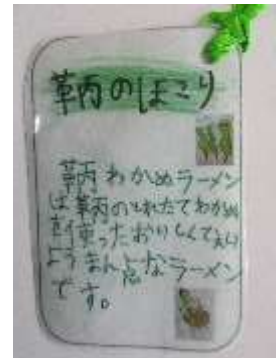 鞆のほこり
鞆わかめラーメン
は鞆のとれたてわかめ
を使ったおいしくてえい
ようまん点なラーメン
です。